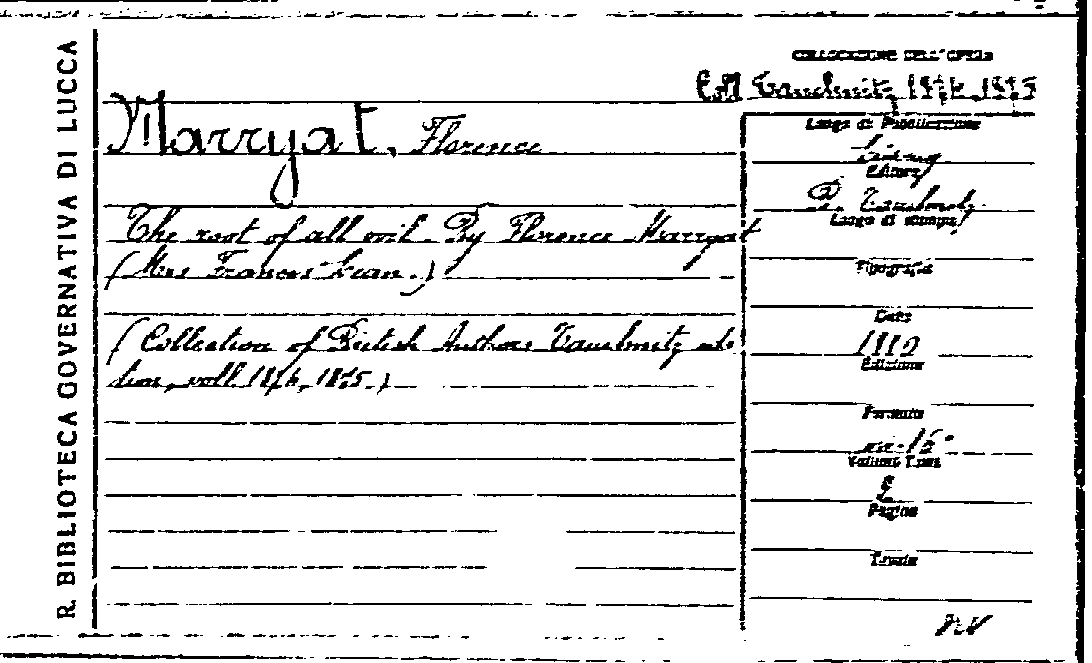 R. BIBLIOTECA GOVERNATIVA DI LUCCA
COLLOCAZIONE DELL'OPERA
Coll. Tauchnitz
Marryat, Florence
The root of all evil. By Florence Marryat
(Mrs Francis Lean.)
(Collection of British Authors Tauchnitz edi-
tion, voll.
Luogo di Pubblicazione
Editore
B. Tauchnitz
Luogo di stampa
Tipografia
Data
Edizione
Formato
in-16°
Volumi Tomi
2
Pagine
Tavole